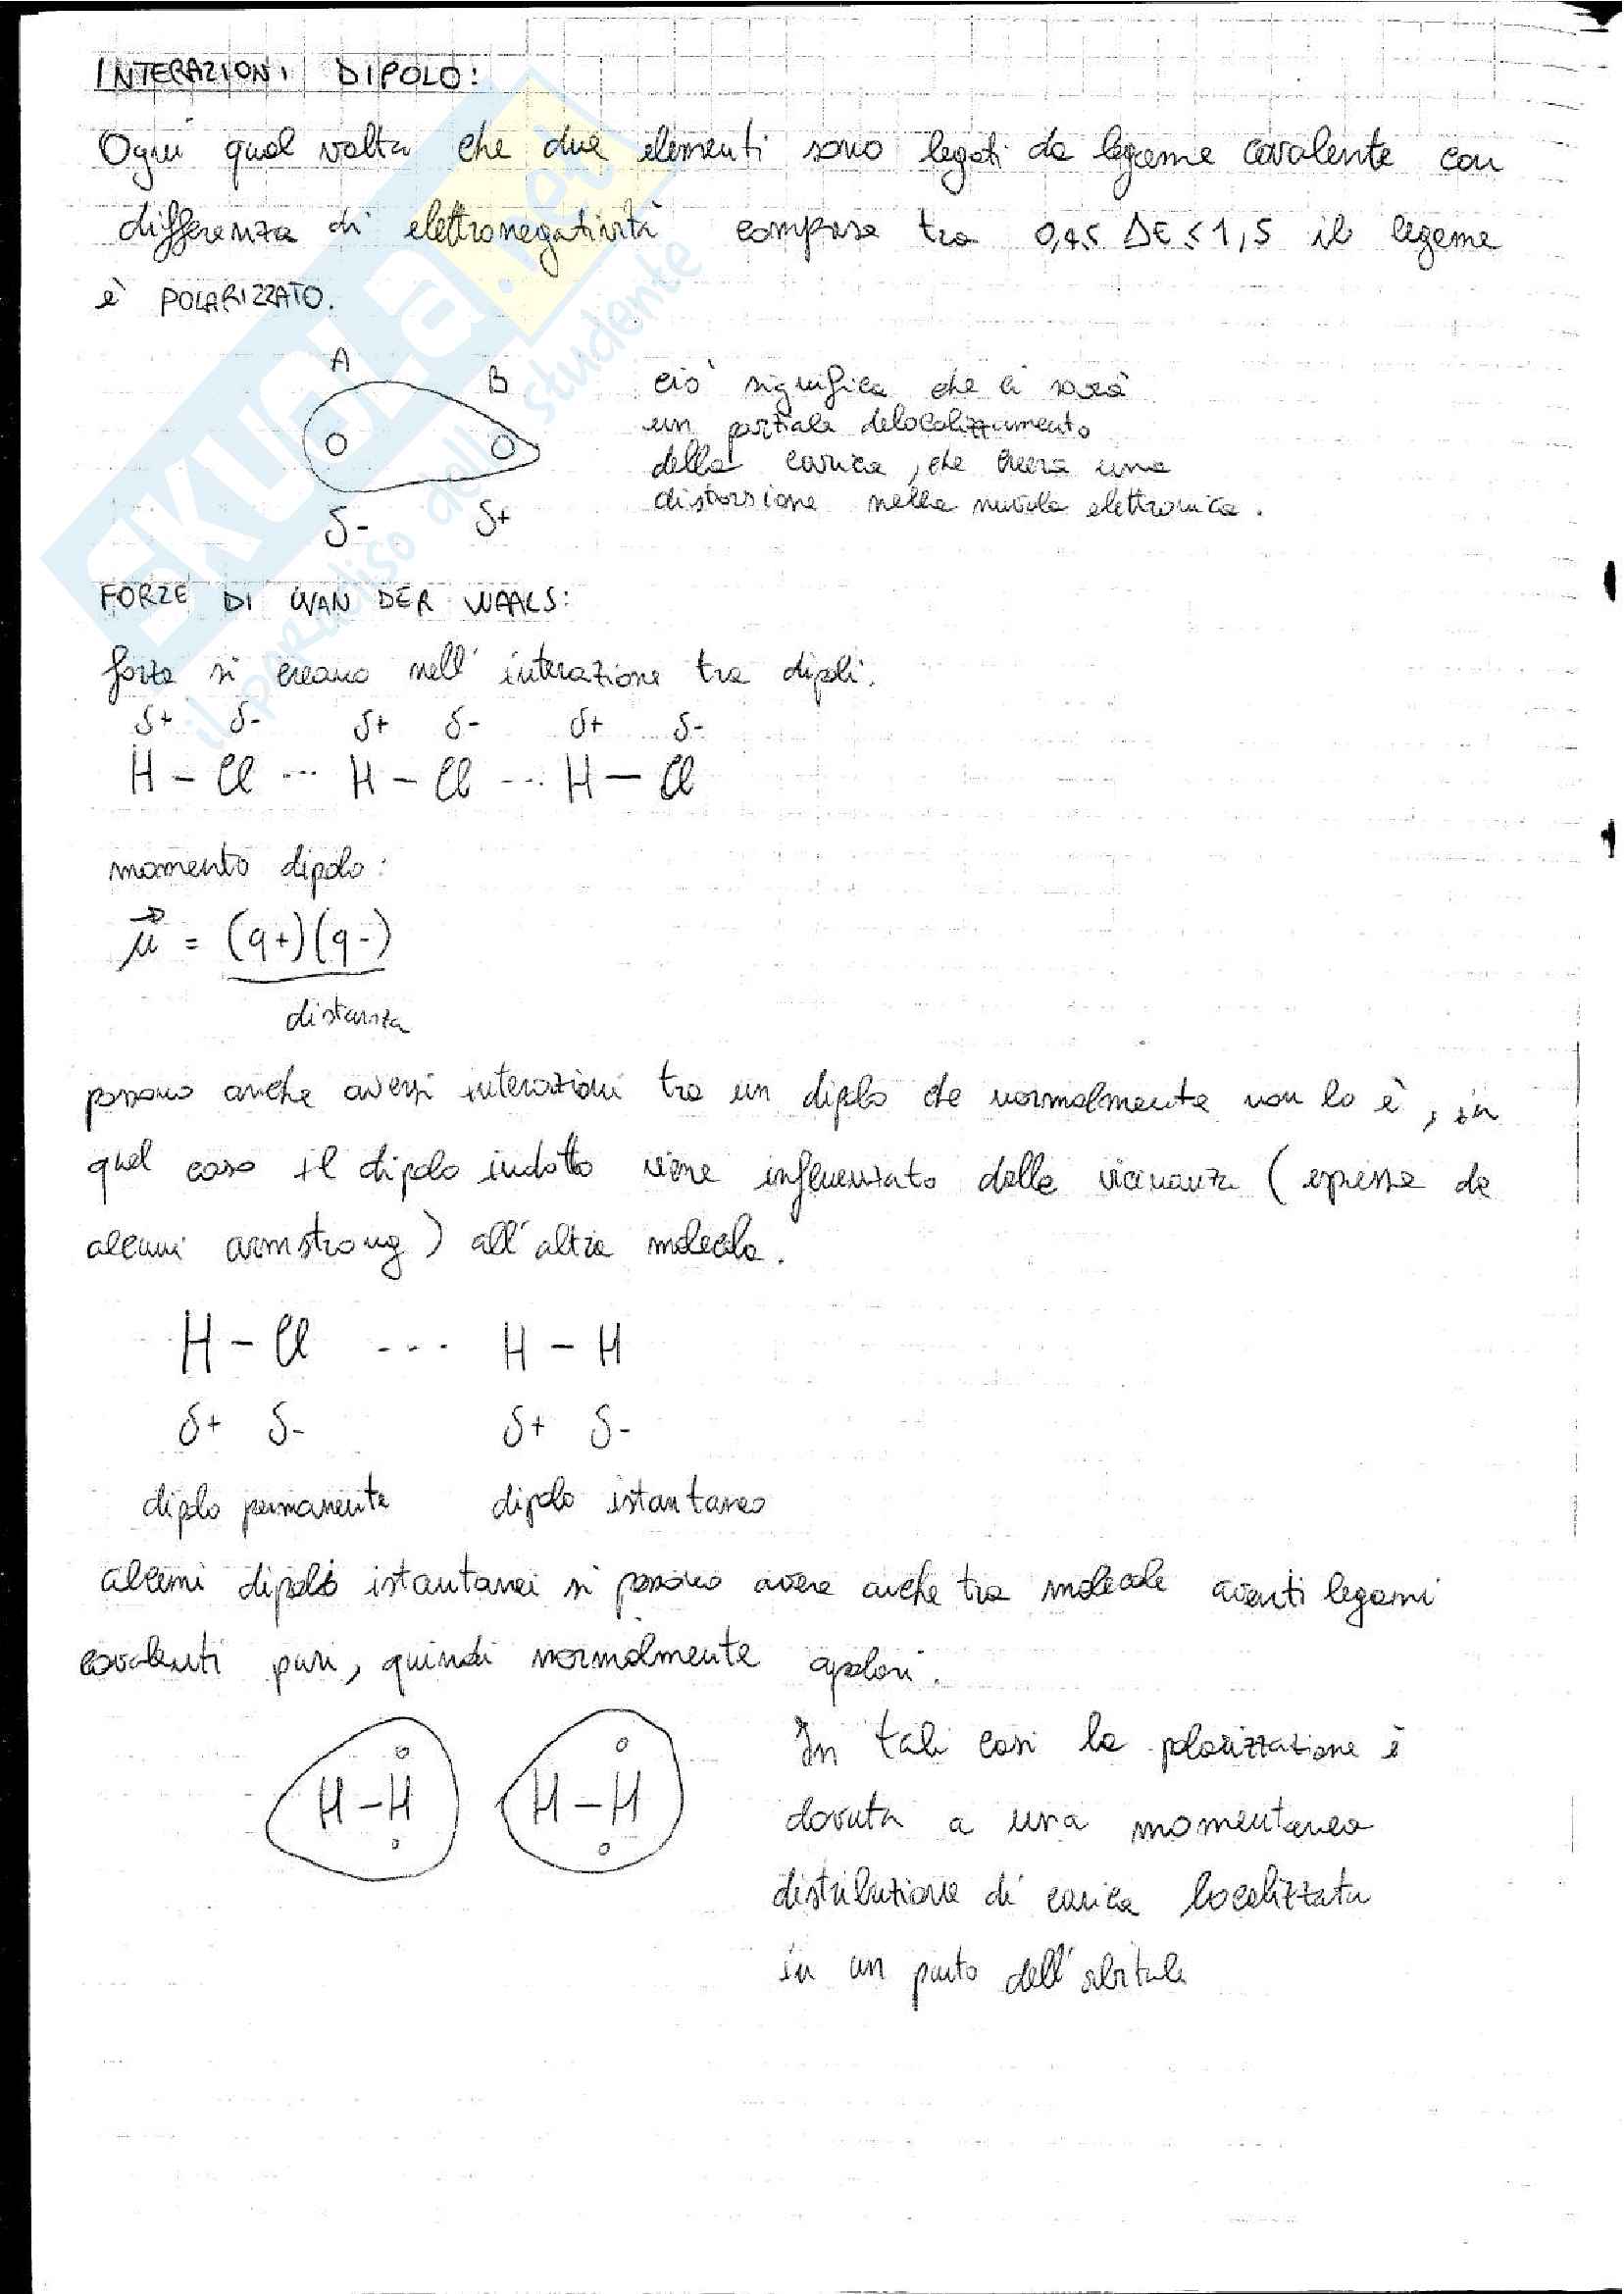 INTERAZIONI DIPOLO:
Ogni qual volta che due elementi sono legati da legame covalente con
differenza di elettronegatività compresa tra 0,4 ≤ ΔE ≤ 1,5 il legame
è POLARIZZATO.
A
B
δ- δ+
ciò significa che ci sarà
un parziale delocalizzamento
della carica, che creera una
distorsione nella nuvola elettronica.
FORZE DI WAN DER WAALS:
forze si creano nell' interazione tra dipoli.
δ+ δ- δ+ δ- δ+ δ-
H - Cl ... H - Cl ... H - Cl
momento dipolo:
μ = (q+)(q-)
distanza
possono anche aversi interazioni tra un dipolo che normalmente non lo è, in
quel caso il dipolo indotto viene influenzato dalla vicinanza (espressa da
alcuni armstrong) all'altra molecola.
H - Cl ... H - H
δ+ δ- δ+ δ-
diplo permanente dipolo istantaneo
alcuni dipoli istantanei si possono avere anche tra molecole aventi legami
covalenti puri, quindi normalmente apolari.
H - H H - H
In tali casi la polarizzazione è
dovuta a una momentanea
distribuzione di carica localizzata
in un punto dell'orbitale
SKUOLA.net
il paradiso dello studente